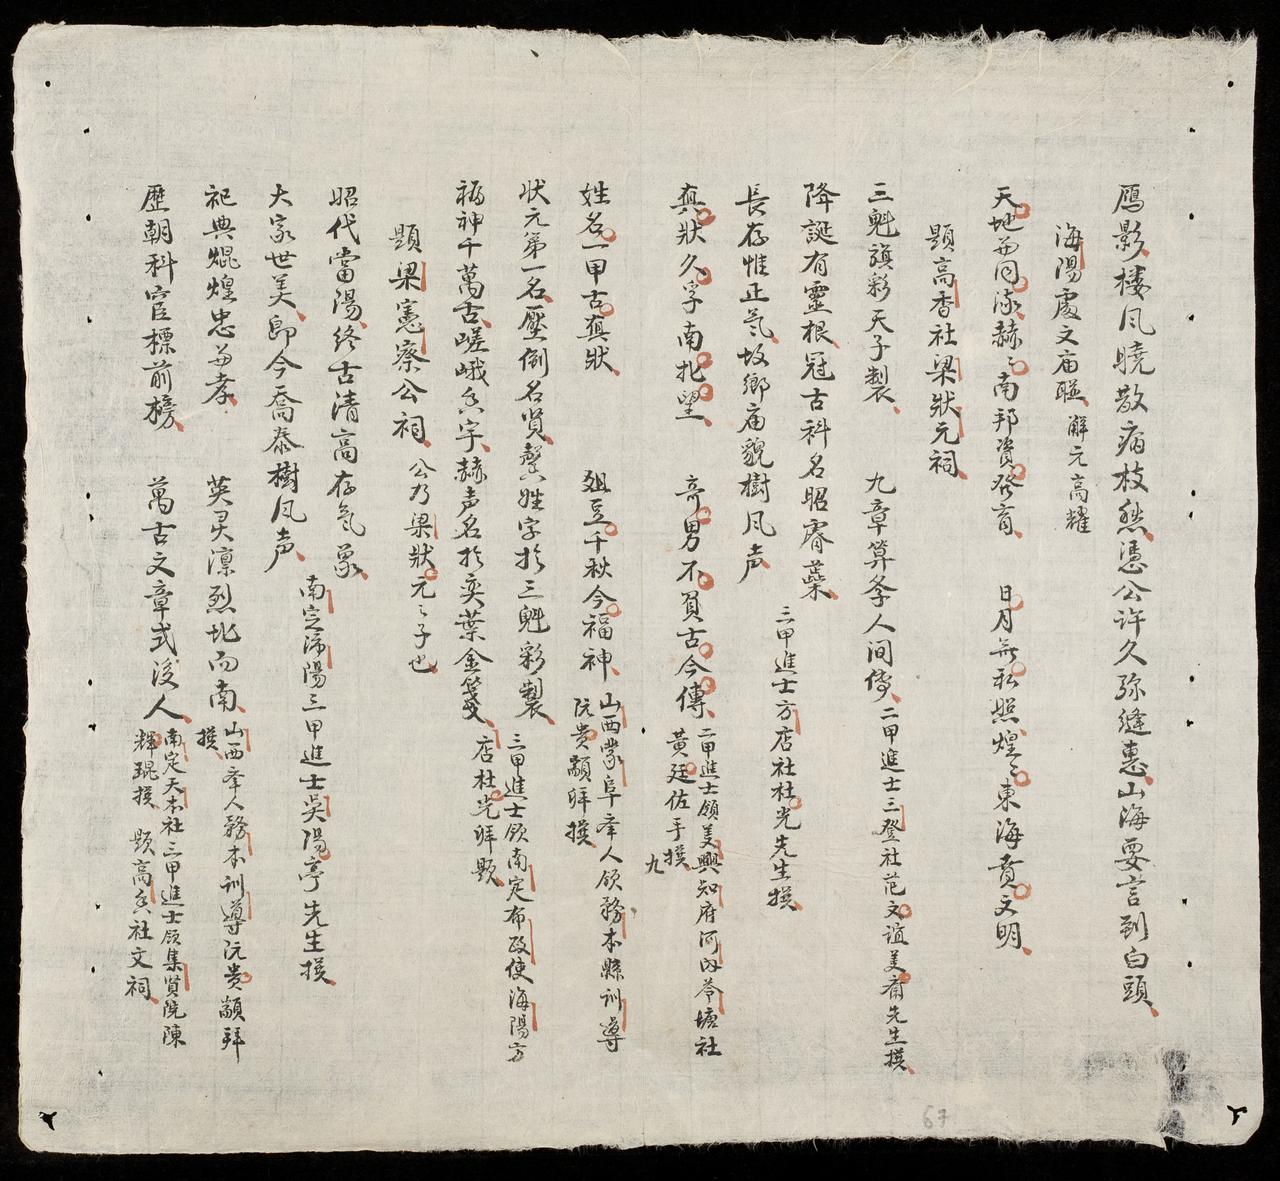 鴈影楼風曉散病枝愁憑公许久弥縫惠山海要言到白頭
海陽處文庙聯 解元高耀
天地並同流赫〻南邦資發育 日月無私照煌〻東海賁文明
題高香社梁狀元祠
三魁旗彩天子製 九章筭李人间傳 二甲進士三登社范文誼美齋先生撰
降誕有靈根冠古科名昭睿藻
長存惟正氣故鄉庙貌樹风声 三甲進士方店社杜光先生撰
真狀久字南北望 奇男不負古今傳 二甲進士領美興知府河内苓塘社
黃廷佐手撰 九
姓名一甲古真狀 俎豆千秋今福神 山西蒙阜李人領務本縣訓導
阮贵颛拜撰
狀元第一名壓倒名賢馨姓字於三魁彩製
福神千萬古嵯峨庙宇赫声名於奕葉金箋 三甲進士領南定布政使海陽方
店社杜光拜題
題梁憲察公祠 公乃梁狀元〻子也
昭代當陽終古清高存氣象
大家世美即今喬泰樹风声 南定沛陽三甲進士吳陽亭先生撰
祀典焜煌忠並孝 英灵凛烈北而南 山西李人務本訓導沅贵颛拜
撰
歷朝科宦標前榜 萬古文章式後人 南定天本社三甲進士領集賢院陳
輝琨撰 題高香社文祠
67